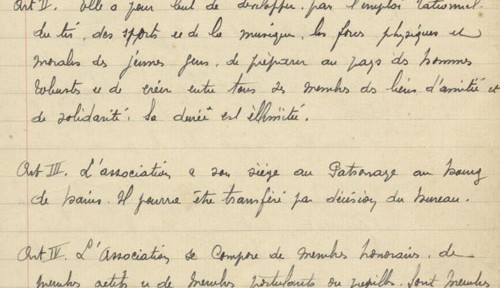 Art II. Elle a pour but de développer par l'emploi rationnel
du tir, des sports et de la musique, les forces physiques et
morales des jeunes gens, de préparer au pays des hommes
robustes et de créer entre tous ses membres des liens d'amitié et
de solidarité. Sa durée est illimitée.
Art III. L'association a son siège au Patronage au bourg
de . Il pourra être transféré par décision du bureau.
Art IV. L'Association se compose de membres honoraires, de
membres actifs et de membres postulants ou pupilles. Sont membres